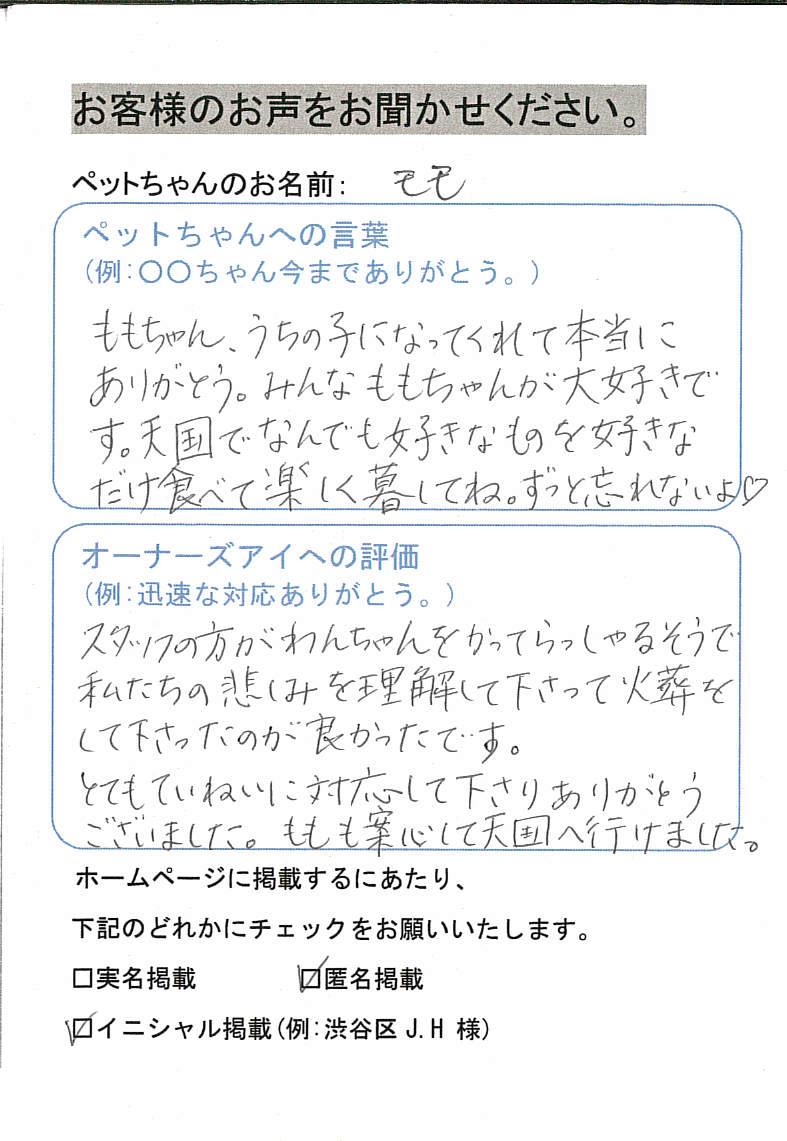 お客様のお声をお聞かせください。
ペットちゃんのお名前: モモ
ペットちゃんへの言葉
(例:〇〇ちゃん今までありがとう。)
ももちゃん、うちの子になってくれて本当に
ありがとう。みんなももちゃんが大好きで
す。天国でなんでも好きなものを好きな
だけ食べて楽しく暮してね。ずっと忘れないよ♡
オーナーズアイへの評価
(例:迅速な対応ありがとう。)
スタッフの方がわんちゃんをかってらっしゃるそうで
私たちの悲しみを理解して下さって火葬を
して下さったのが良かったです。
とてもていねいに対応して下さりありがとう
ございました。ももも案心して天国へ行けました。
ホームページに掲載するにあたり、
下記のどれかにチェックをお願いいたします。
□実名掲載 ☑匿名掲載
☑イニシャル掲載(例:渋谷区 J.H 様)